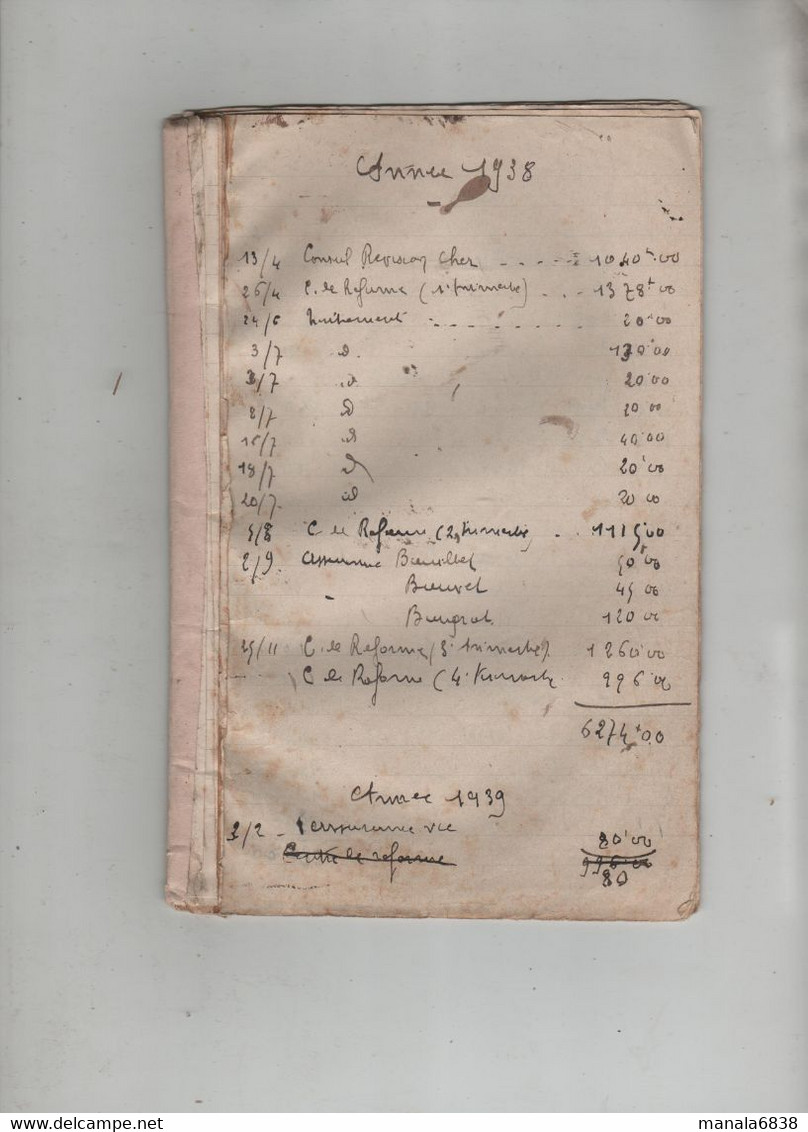 Année 1938
13/4 Conseil Revision Cher - - - - - 1040 00
26/4 C. de Reforme (1° trimestre) . . . 1378 00
24/6 - - - - - 20 00
3/7 d. 00
3/7 d 20 00
8/7 d 20 00
16/7 d 40 00
18/7 d 20 00
20/7. d 20 00
5/8 C de Reforme (2 trimestre) . . 1115 00
2/9. Assurance 50 00
Bouvet 45 00
120 00
25/11 C. de Reforme (3° trimestre). 1260 00
C de Reforme (4° trimestre 996 00
6274 00
Année 1939
3/2 - 1 assurance vie 80 00
Centre de reforme 996 00
80
manala6838